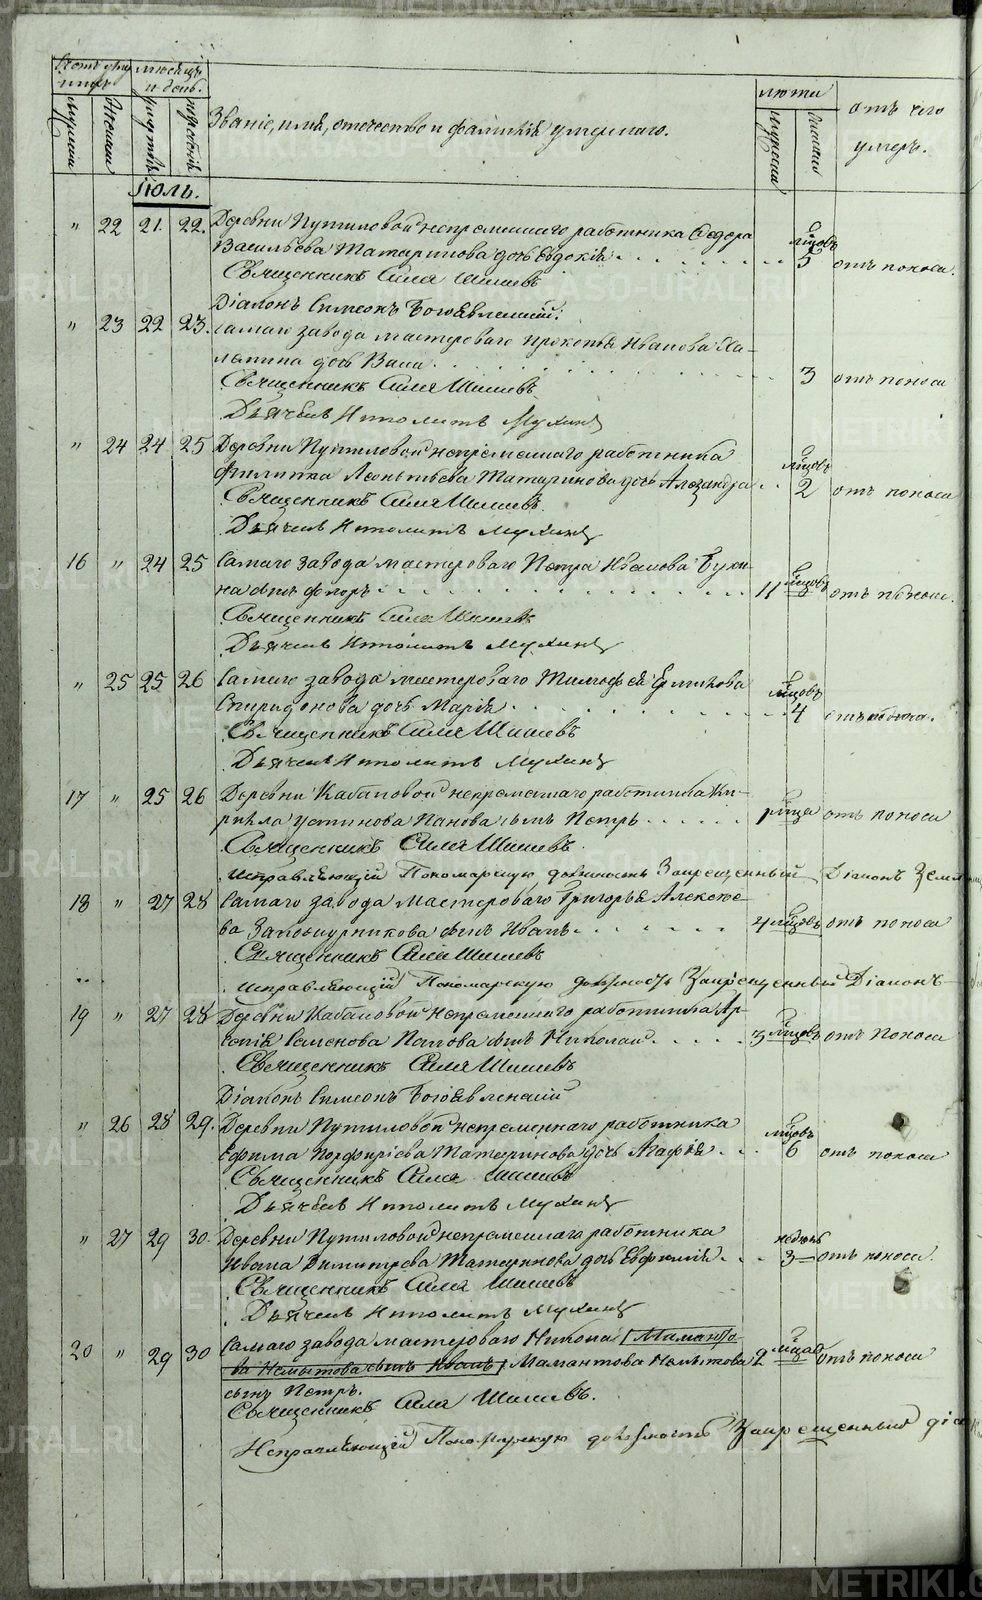 Счетъ умер- мѣсяцъ
шихъ и день. лѣта отъ чего
мужска женска смерти погребенія Званіе, имя, отечество и фамилія умершаго. мужска женска умеръ.
Іюль.
" 22 21. 22. Деревни Путиловой непремѣннаго работника Ѳедора
Васильева Татаринова дочь Евдокія мѣсяцовъ 5 отъ поноса.
Священникъ Сила Шишевъ
Діаконъ Симеонъ Богоявленскій.
" 23 22 23. Самаго завода мастероваго Прокопья Иванова
дочь 3 отъ поноса
Священникъ Сила Шишевъ
Дьячекъ Ипполитъ Мухинъ
" 24 24 25 Деревни Путиловой непремѣннаго работника
Филиппа Леонтьева Татаринова дочь Александра мѣсяцовъ 2 отъ поноса
Священникъ Сила Шишевъ
Дьячекъ Ипполитъ Мухинъ
16 " 24 25 Самаго завода мастероваго Петра Иванова
сынъ 11 мѣсяцовъ отъ поноса.
Священникъ Сила Шишевъ
Дьячекъ Ипполитъ Мухинъ
" 25 25 26 Самаго завода мастероваго Тимофея Ермилова
Спиридонова дочь Марія мѣсяцовъ 4 отъ поноса.
Священникъ Сила Шишевъ
Дьячекъ Ипполитъ Мухинъ
17 " 25 26 Деревни Кабановой непремѣннаго работника Ки-
рилла Устинова Панова сынъ Петръ 1 мѣсяца отъ поноса
Священникъ Сила Шишевъ
Исправляющій Пономарскую должность Запрещенный Діаконъ
18 " 27 28 Самаго завода мастероваго Григорья Алексѣе-
ва сынъ Иванъ 4 мѣсяцовъ отъ поноса
Священникъ Сила Шишевъ
Исправляющій Пономарскую должность Запрещенный Діаконъ
19 " 27 28 Деревни Кабановой непремѣннаго работника Ар-
сенія Семенова Панова сынъ Николай 3 мѣсяцовъ отъ поноса
Священникъ Сила Шишевъ
Діаконъ Симеонъ Богоявленскій
" 26 28 29. Деревни Путиловой непремѣннаго работника
Ефима Порфирьева Татаринова дочь Агафія мѣсяцовъ 6 отъ поноса
Священникъ Сила Шишевъ
Дьячекъ Ипполитъ Мухинъ
" 27 29 30. Деревни Путиловой непремѣннаго работника
Ивана Димитрева Татаринова дочь Евфимія недѣль 3 отъ поноса.
Священникъ Сила Шишевъ
Дьячекъ Ипполитъ Мухинъ
20 " 29 30 Самаго завода мастероваго Никона Маманто-
ва Немытова сынъ Иванъ Мамантова Немытова 2 мѣсяца отъ поноса
сынъ Петръ.
Священникъ Сила Шишевъ.
Исправляющій Пономарскую должность Запрещенный
METRIKI.GASO-URAL.RU